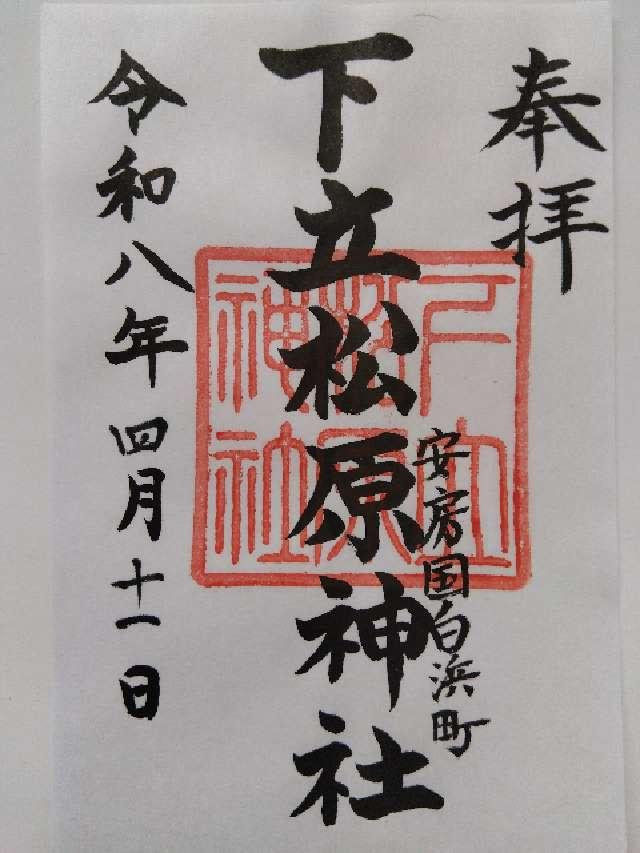 奉拝
安房国白浜町
下立松原神社
下立松原神社
令和八年四月十一日